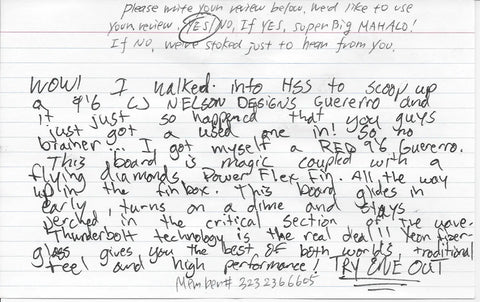 please write your review below. We'd like to use
your review. YES/NO. If YES, super Big MAHALO!
If NO, we're stoked just to hear from you.
WOW! I walked into HSS to scoop up
a 9'6 CJ NELSON DESIGNS Guererro and
it just so happened that you guys
just got a used one in! So no
brainer... I got myself a RED 9'6 Guererro.
This board is magic coupled with a
flying diamonds Power Flex Fin. All the way
up in the fin box. This board glides in
early, turns on a dime and stays
perched in the critical section of the wave.
Thunderbolt technology is the real deal! Yeon fiber-
glass gives you the best of both worlds, traditional
feel and high performance! TRY ONE OUT
Member# 3232366605